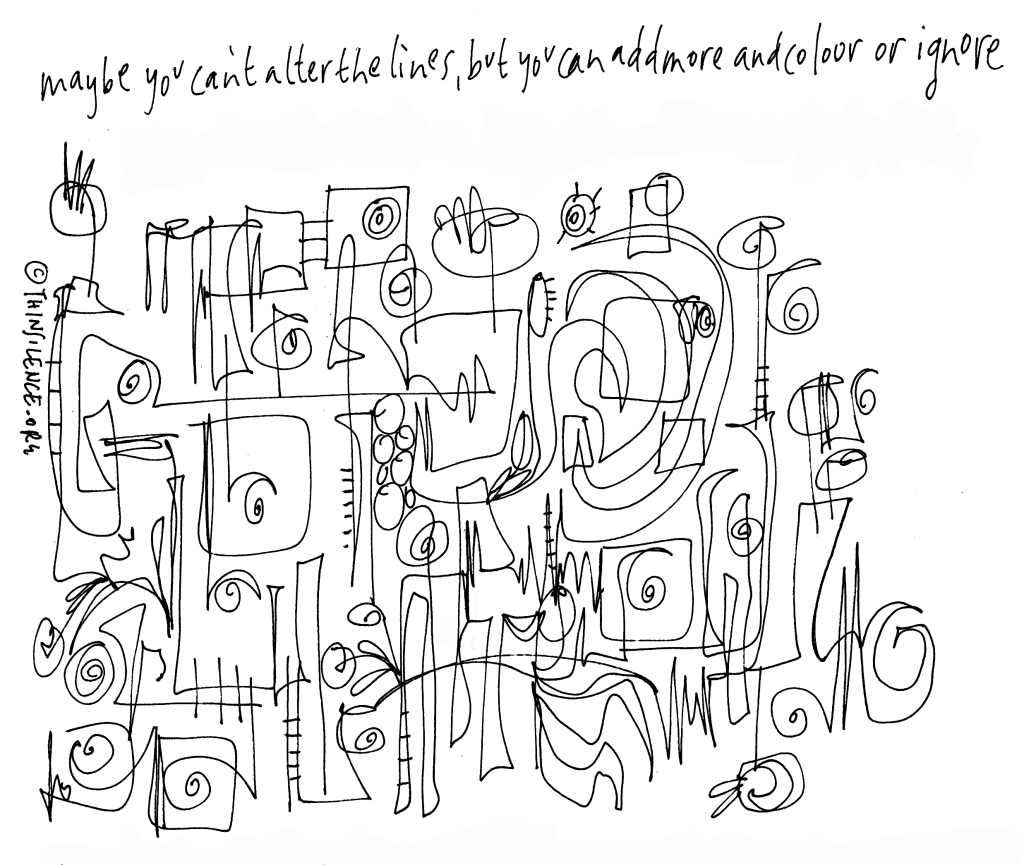 maybe you can't alter the lines, but you can add more and colour or ignore
© THINSILENCE.ORG